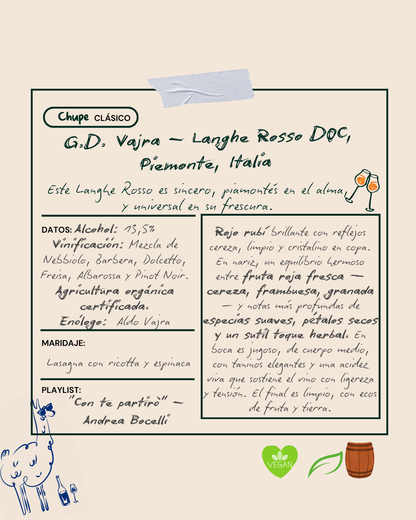 Chupe CLÁSICO
G.D. Vajra – Langhe Rosso DOC,
Piemonte, Italia
Este Langhe Rosso es sincero, piamontés en el alma,
y universal en su frescura.
DATOS: Alcohol: 13,5%
Vinificación: Mezcla de
Nebbiolo, Barbera, Dolcetto,
Freisa, Albarossa y Pinot Noir.
Agricultura orgánica
certificada.
Enólogo: Aldo Vajra
MARIDAJE:
Lasagna con ricotta y espinaca
PLAYLIST:
"Con te partirò" –
Andrea Bocelli
Rojo rubí brillante con reflejos
cereza, limpio y cristalino en copa.
En nariz, un equilibrio hermoso
entre fruta roja fresca —
cereza, frambuesa, granada
— y notas más profundas de
especias suaves, pétalos secos
y un sutil toque herbal. En
boca es jugoso, de cuerpo medio,
con taninos elegantes y una acidez
viva que sostiene el vino con ligereza
y tensión. El final es limpio, con ecos
de fruta y tierra.
VEGAN